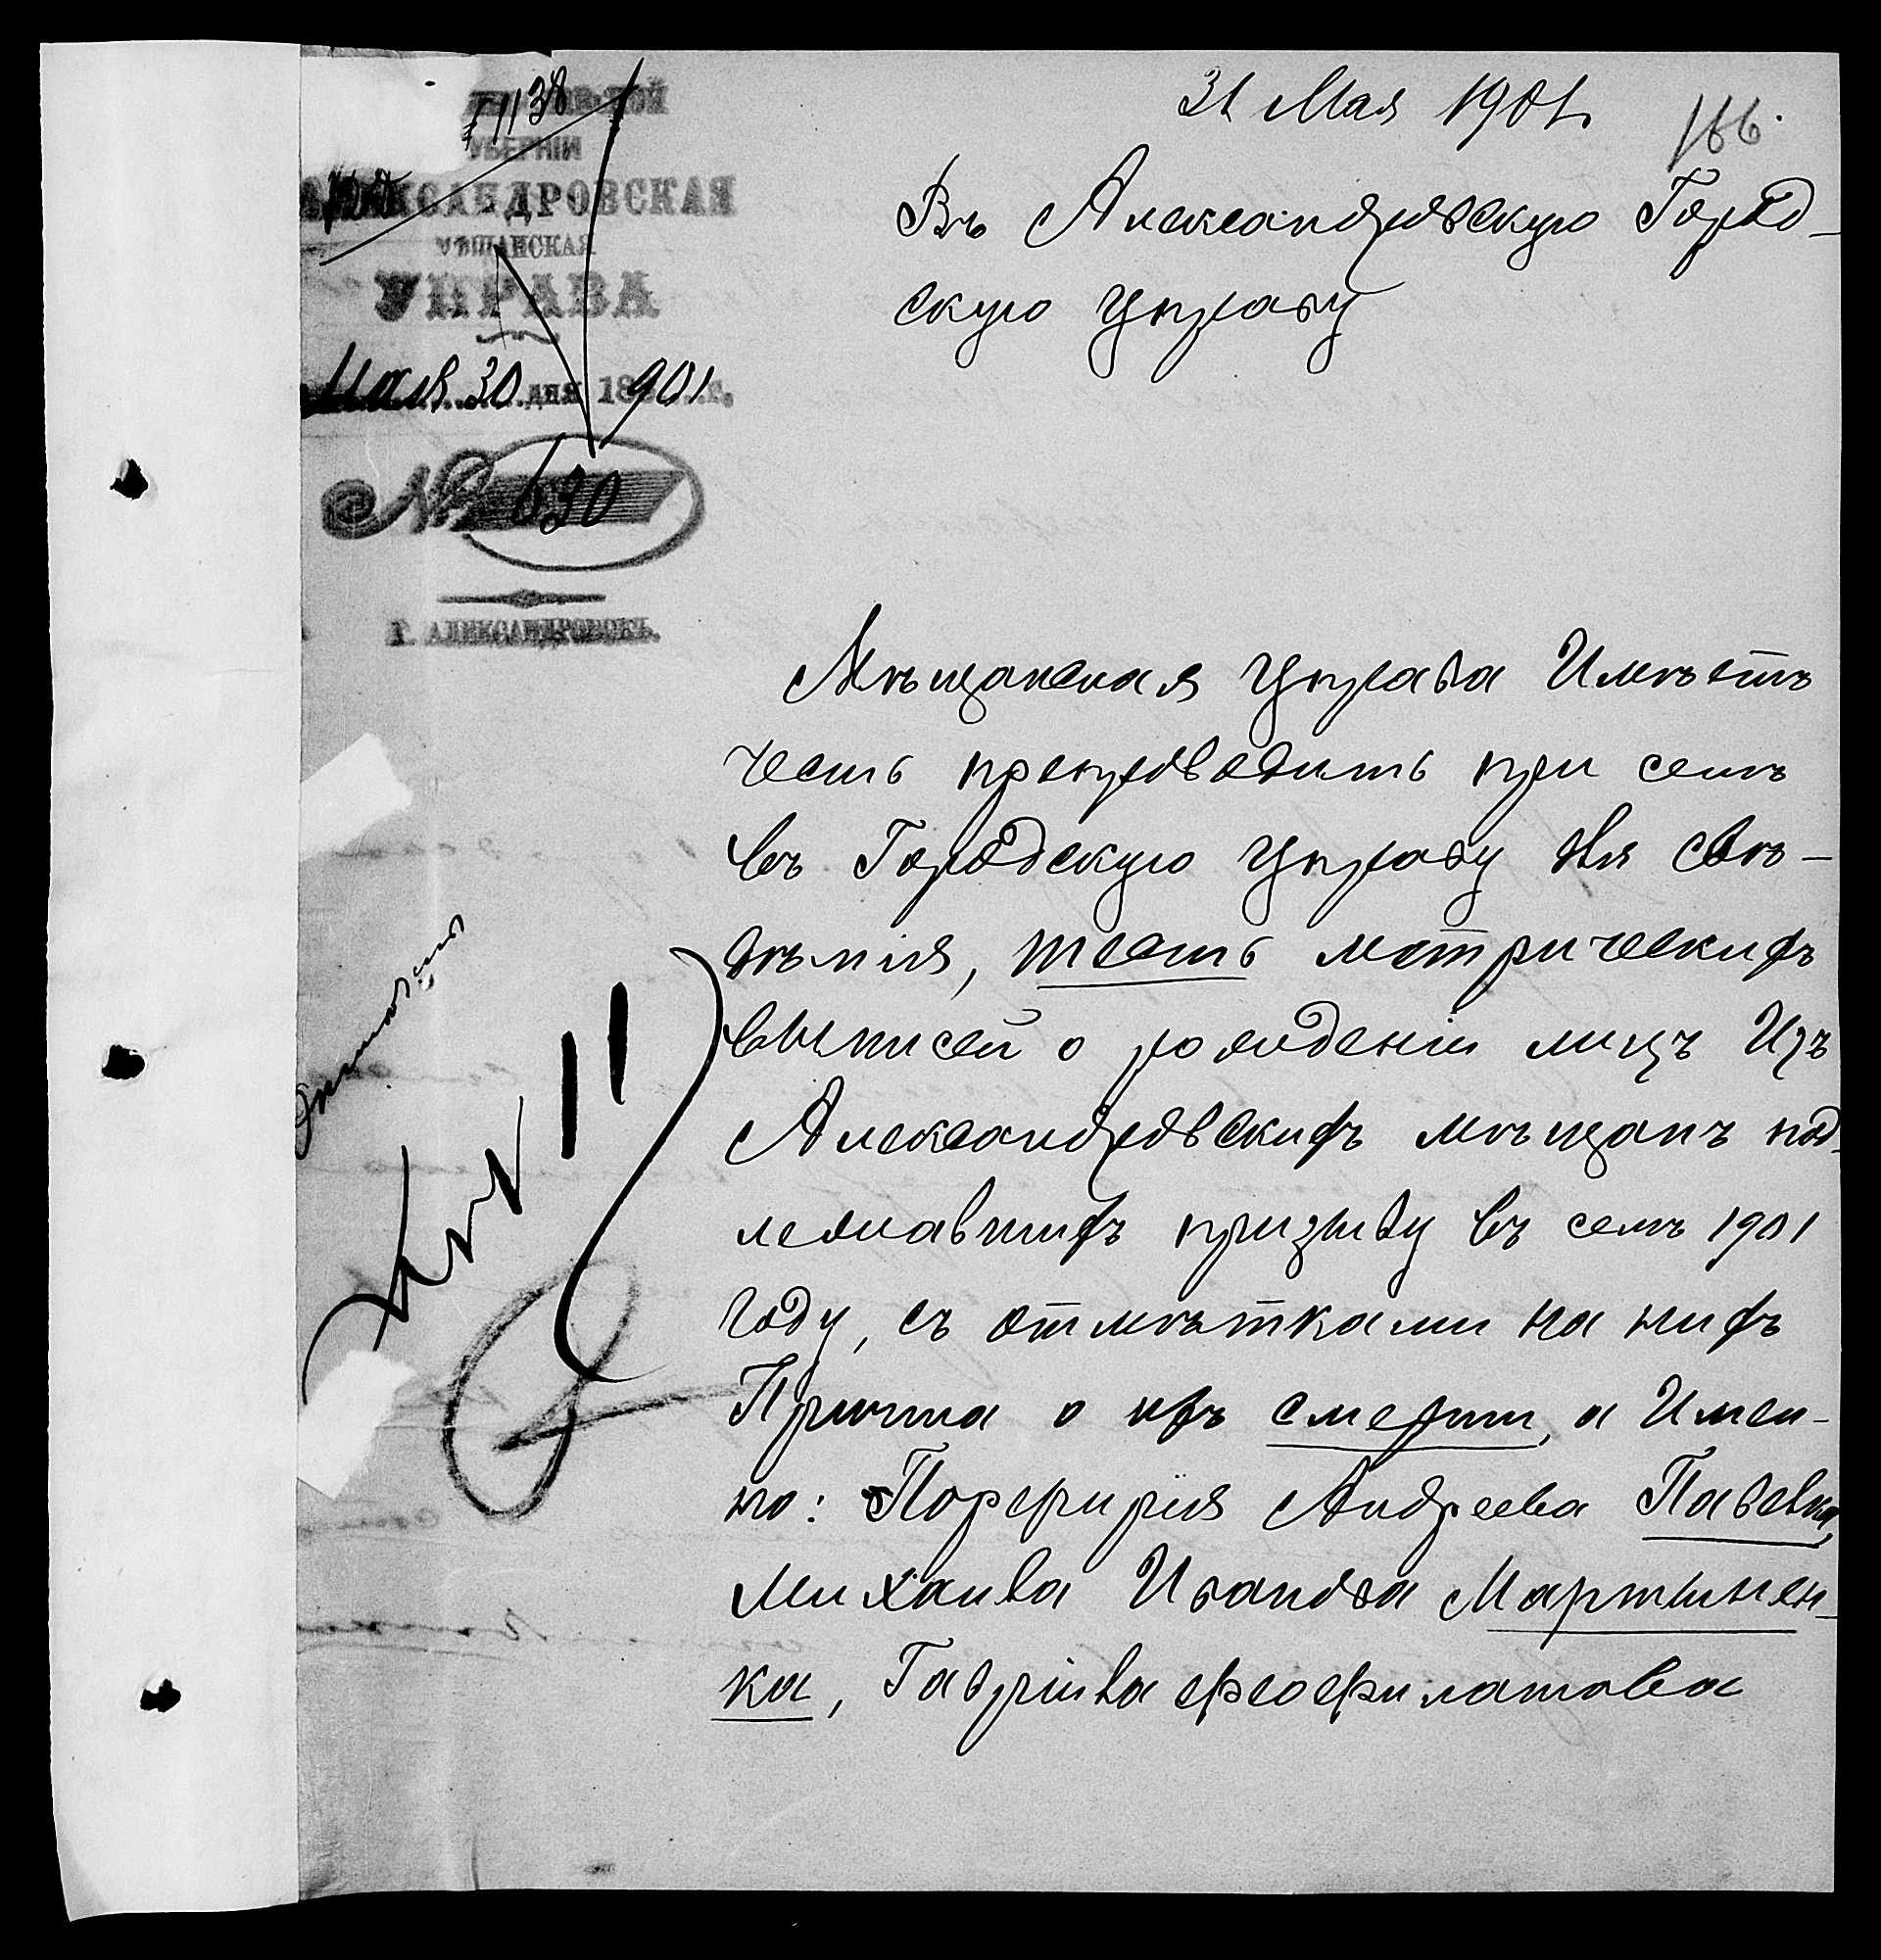 1138
УБЕРНІИ
АЛЕКСАНДРОВСКАЯ
МѢЩАНСКАЯ
УПРАВА
Мая 30 дня 18 901 г.
№ 630
Г. АЛЕКСАНДРОВСКЪ.
31 Мая 1901
166.
Въ Александровскую Город-
скую Управу
Мѣщанская Управа Имѣетъ
честь препроводить при семъ
въ Городскую Управу для свѣ-
дѣнія, шесть метрическихъ
выписей о рожденіи лицъ Изъ
Александровскихъ мѣщанъ под-
лежавшихъ призыву въ семъ 1901
году, съ отмѣтками на нихъ
Причта о ихъ смерти, а Имен-
но: Порфирія Андреева Павенка,
Михаила Иванова Мартынен-
ка, Гавріила Феофилатова